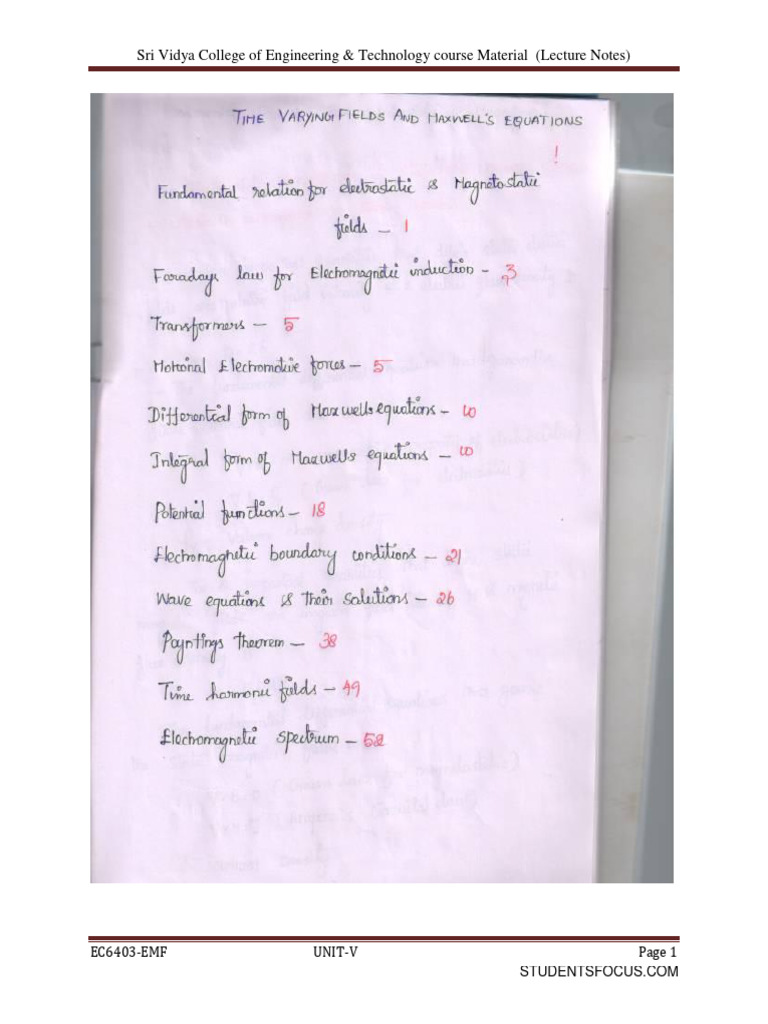 Sri Vidya College of Engineering & Technology course Material (Lecture Notes)
TIME VARYING FIELDS AND MAXWELL'S EQUATIONS
!
Fundamental relation for electrostatic & Magnetostatic
fields - 1
Faradays law for Electromagnetic induction - 3
Transformers - 5
Motional Electromotive forces - 5
Differential form of Maxwells equations - 10
Integral form of Maxwells equations - 10
Potential functions - 18
Electromagnetic boundary conditions - 21
Wave equations & their solutions - 26
Poyntings theorem - 38
Time harmonic fields - 49
Electromagnetic spectrum - 52
EC6403-EMF UNIT-V Page 1
STUDENTSFOCUS.COM